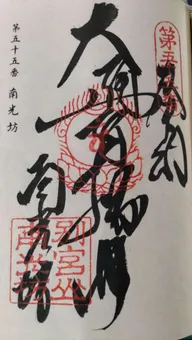 第五十五番
大通智勝佛
南光坊
別宮山
南光坊
第五十五番 南光坊